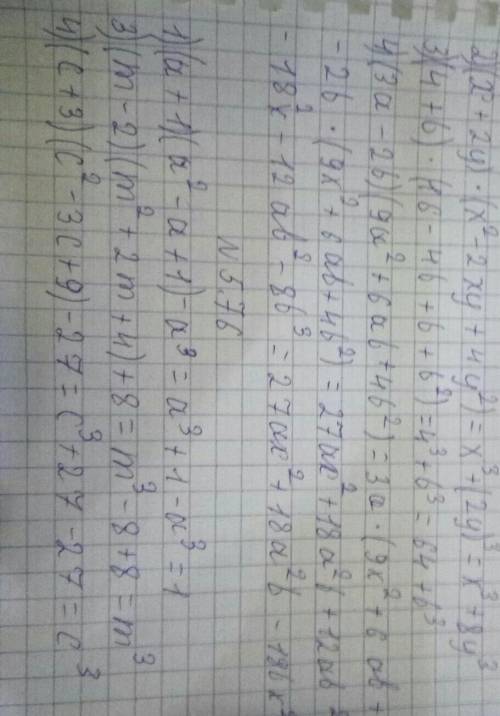 2)(x+2y)·(x²-2xy+4y²)=x³+(2y)³=x³+8y³
3)(4+b)·(16-4b+b+b²)=4³+b³=64+b³
4)(3a-2b)(9a²+6ab+4b²)=3a·(9x²+6ab+
-2b·(9x²+6ab+4b²)=27ax²+18a²b+12ab²
-18x²-12ab²-8b³=27ax²+18a²b-18bx²
N5.76
1)(a+1)(a²-a+1)-a³=a³+1-a³=1
3)(m-2)(m²+2m+4)+8=m³-8+8=m³
4)(c+3)(c²-3c+9)-27=c³+27-27=c³